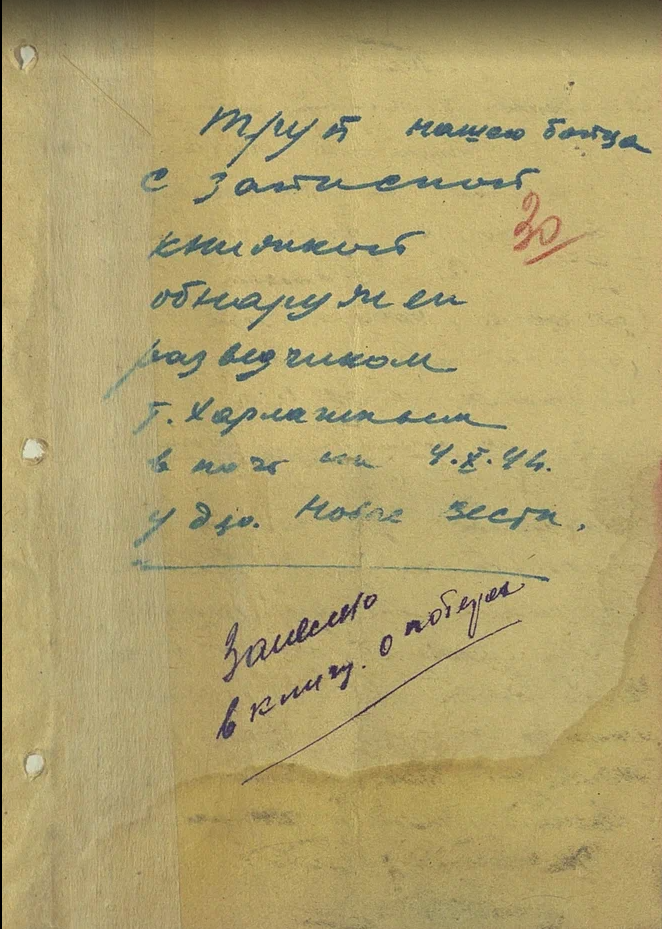 Труп нашего бойца
с записной
книжкой
30
обнаружен
разведчиком
т. Харлашиным
в ночь на 4.X.44.
у дер. Новое Место.
Занесено
в книгу. о потерях